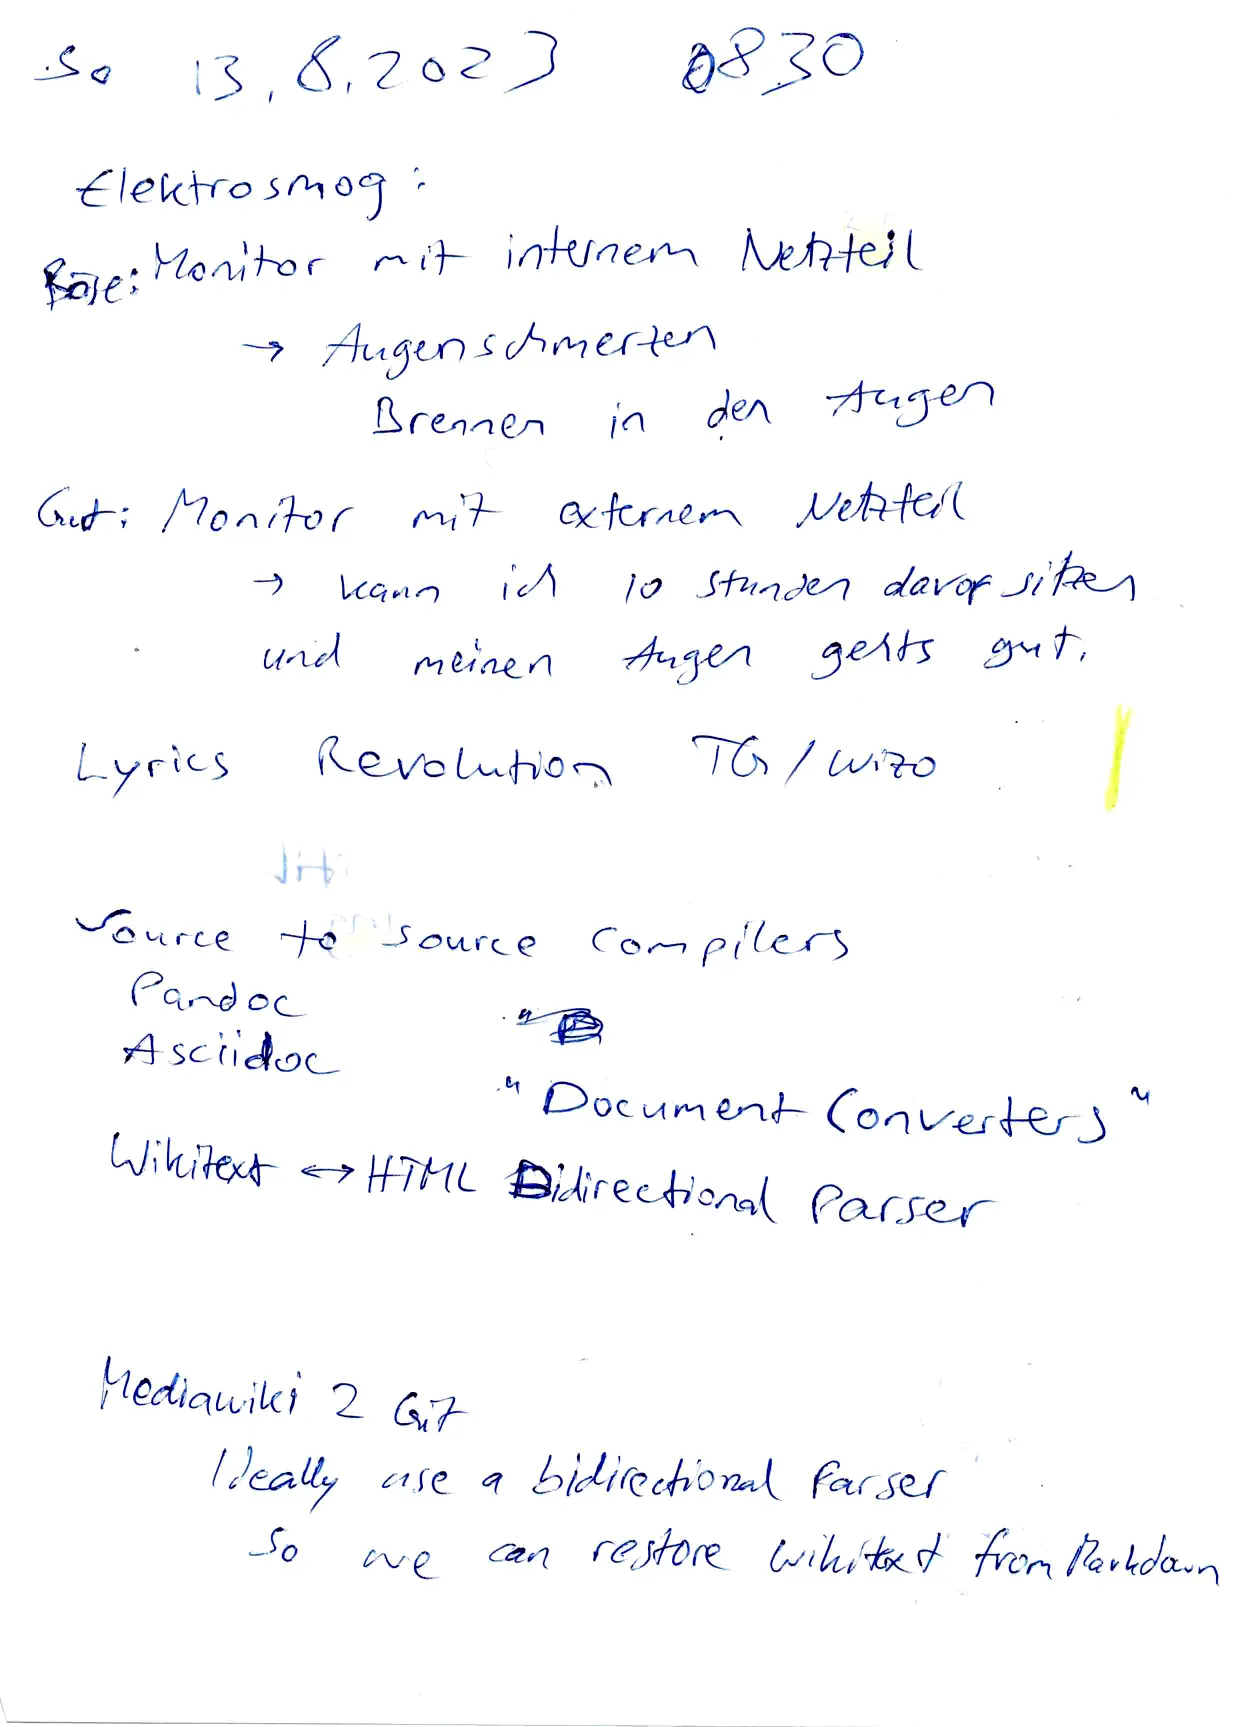 So 13.8.2023 0830
Elektrosmog:
Böse: Monitor mit internem Netzteil
→ Augenschmerzen
Brennen in den Augen
Gut: Monitor mit externem Netzteil
→ kann ich 10 Stunden davor sitzen
und meinen Augen gehts gut.
Lyrics Revolution TG/Wizo
Source to source compilers
Pandoc
Asciidoc
"Document Converters"
Wikitext ↔ HTML Bidirectional Parser
Mediawiki 2 Git
Ideally use a bidirectional Parser
So we can restore Wikitext from Markdown